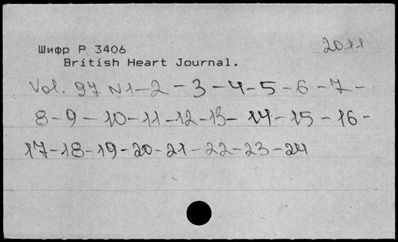 Шифр Р 3406 2011
British Heart Journal.
Vol. 97 N1-2-3-4-5-6-7-
8-9-10-11-12-13-14-15-16-
17-18-19-20-21-22-23-24